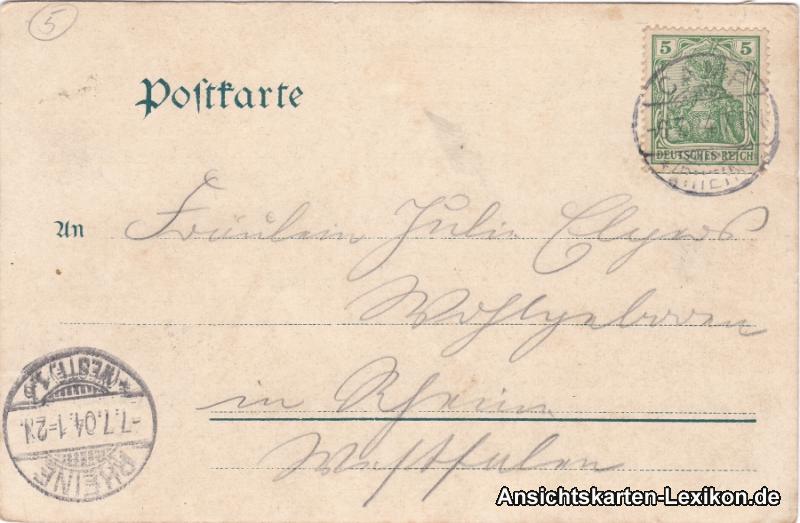 5
Postkarte
5 5
DEUTSCHES REICH
An Fräulein Julie
Wohlgeboren
in Rheine
Westfalen
RHEINE
-7.7.04.1-2N.
(WESTF.)
Ansichtskarten-Lexikon.de